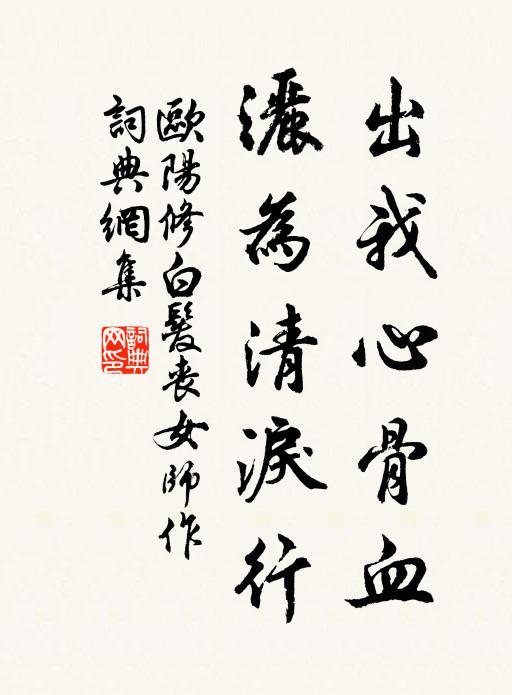 出我心骨血
灑為清淚行
歐陽修白髮喪女師作
詞典網集
詞典網印